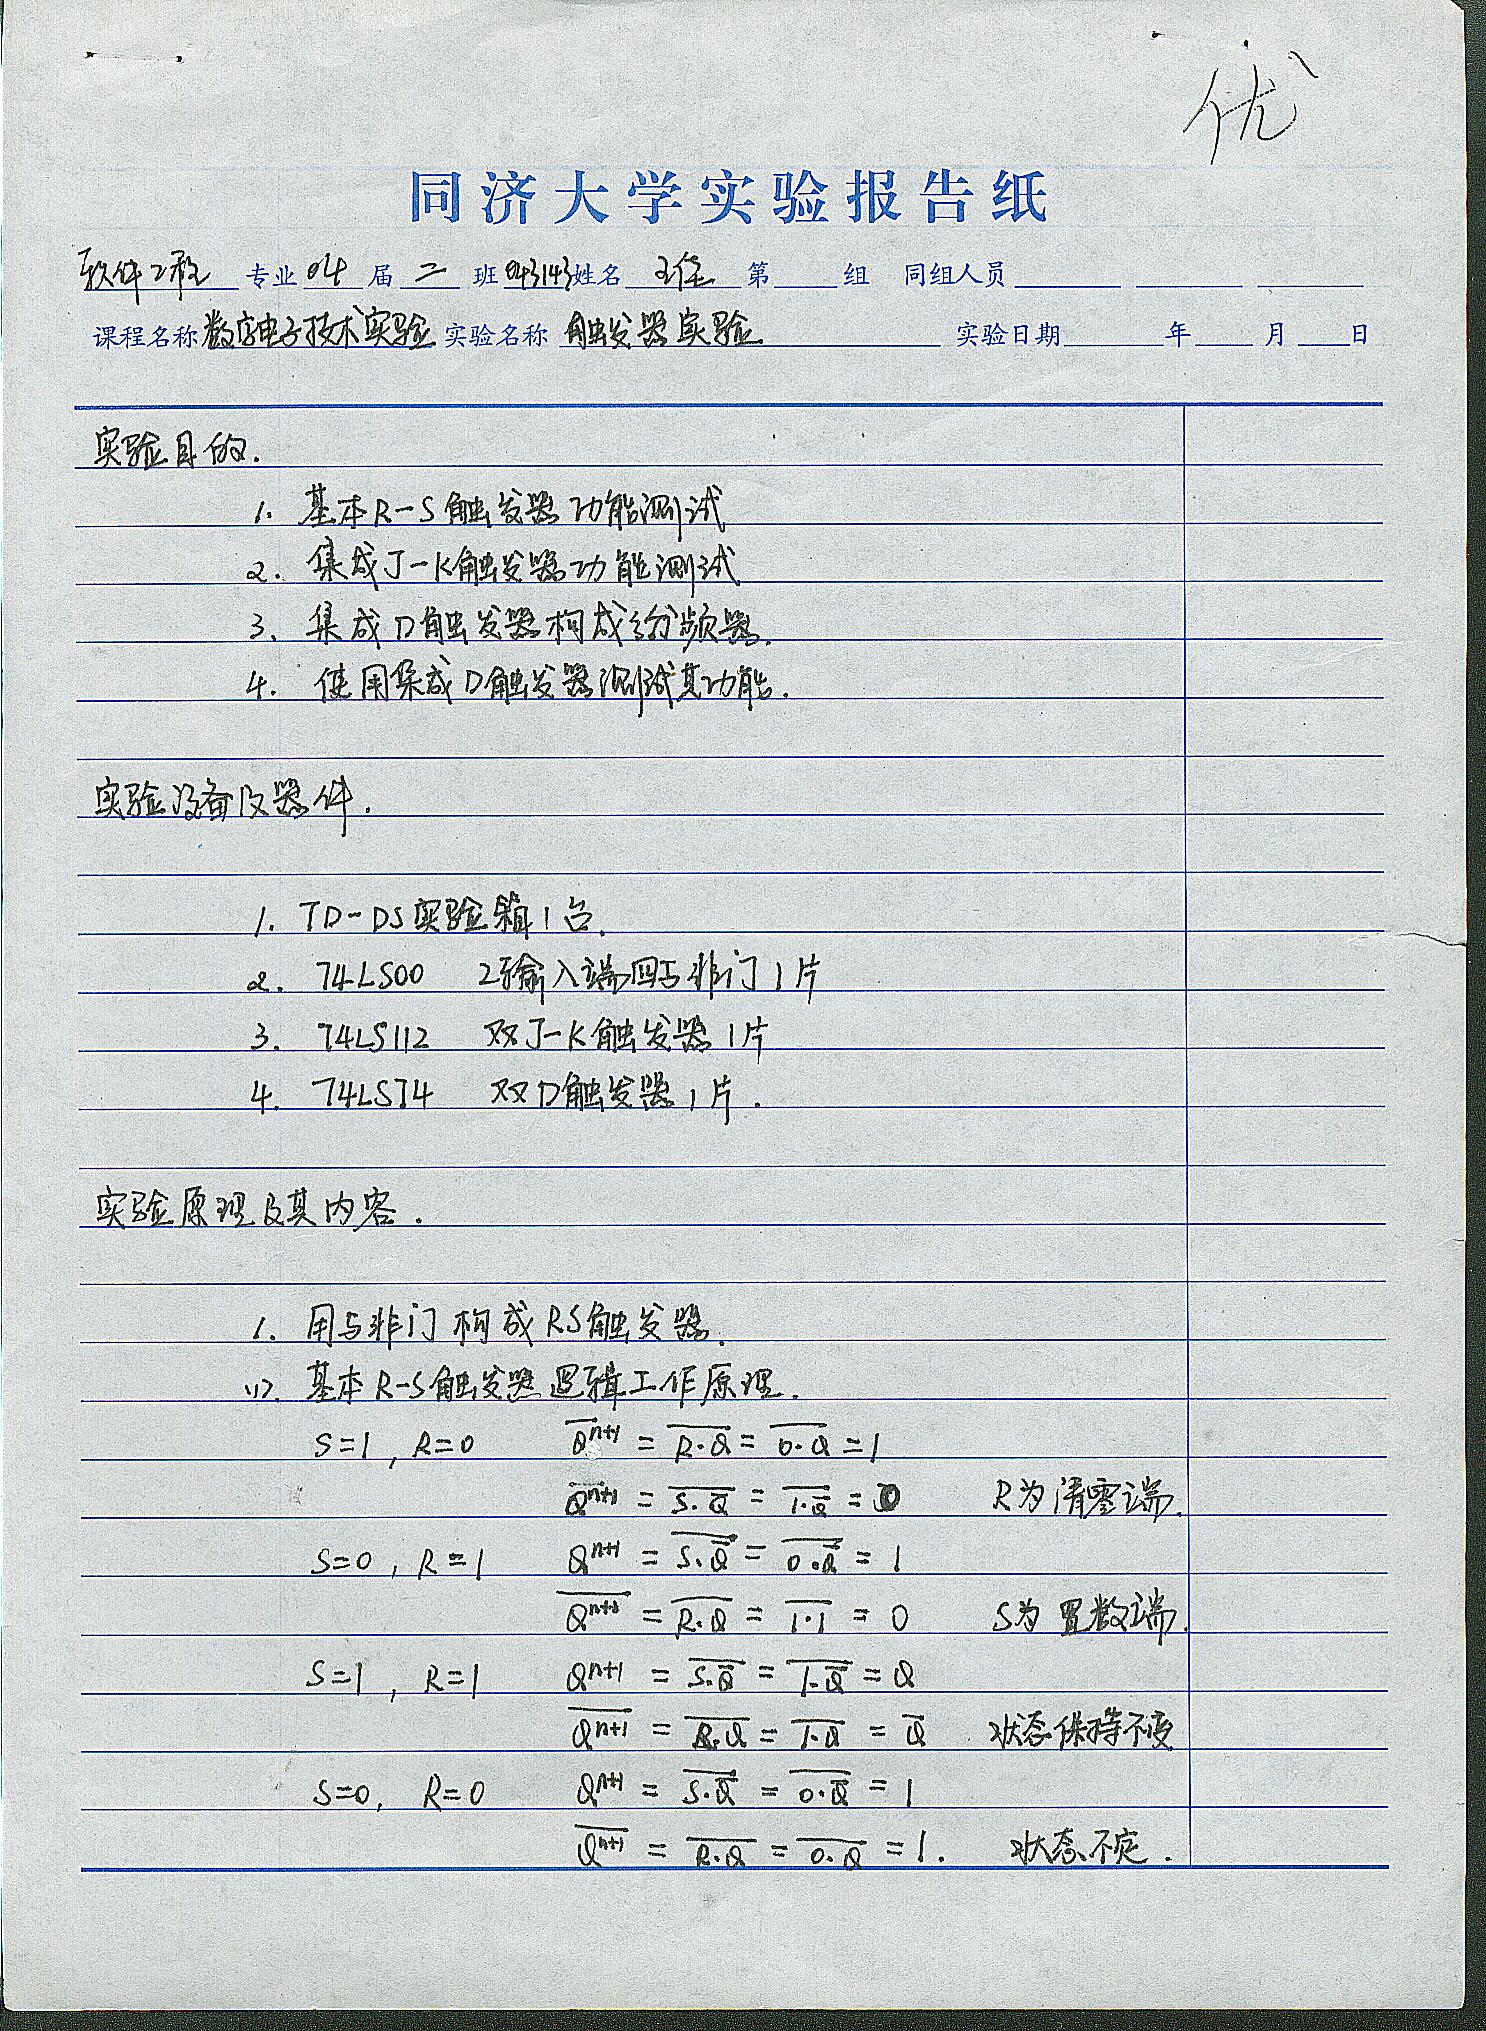 优
同济大学实验报告纸
软件工程 专业 04 届 二 班 043143 姓名 王佳 第 组 同组人员
课程名称 数字电子技术实验 实验名称 触发器实验 实验日期 年 月 日
实验目的.
1. 基本R-S触发器功能测试
2. 集成J-K触发器功能测试
3. 集成D触发器构成分频器.
4. 使用集成D触发器测试其功能.
实验设备及器件.
1. TD-DS实验箱1台.
2. 74LS00 2输入端四与非门1片
3. 74LS112 双J-K触发器1片
4. 74LS74 双D触发器1片.
实验原理及其内容.
1. 用与非门构成RS触发器.
(1). 基本R-S触发器逻辑工作原理.
S=1, R=0 Q̅ⁿ⁺¹ = \overline{R·Q} = \overline{0·Q} = 1
Qⁿ⁺¹ = \overline{S·Q̅} = \overline{1·Q̅} = 0 R为清零端.
S=0, R=1 Qⁿ⁺¹ = \overline{S·Q̅} = \overline{0·Q̅} = 1
\overline{Qⁿ⁺¹} = \overline{R·Q} = \overline{1·1} = 0 S为置数端.
S=1, R=1 Qⁿ⁺¹ = \overline{S·Q̅} = \overline{1·Q̅} = Q
\overline{Qⁿ⁺¹} = \overline{R·Q} = \overline{1·Q} = Q̅ 状态保持不变
S=0, R=0 Qⁿ⁺¹ = \overline{S·Q̅} = \overline{0·Q̅} = 1
\overline{Qⁿ⁺¹} = \overline{R·Q} = \overline{0·Q} = 1. 状态不定.